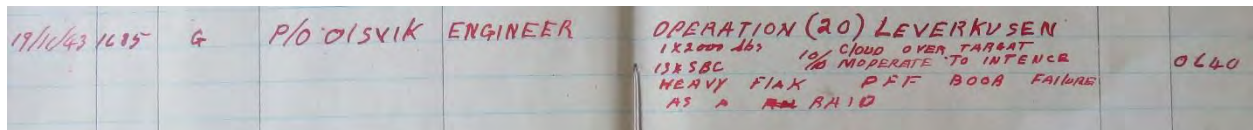 19/11/43 1685 G P/O OLSVIK ENGINEER OPERATION (20) LEVERKUSEN
1 X 2000 lbs 10/ CLOUD OVER TARGET
13 X SBC 10 MODERATE TO INTENCE 0640
HEAVY FLAK PFF BOOB FAILURE
AS A RAID